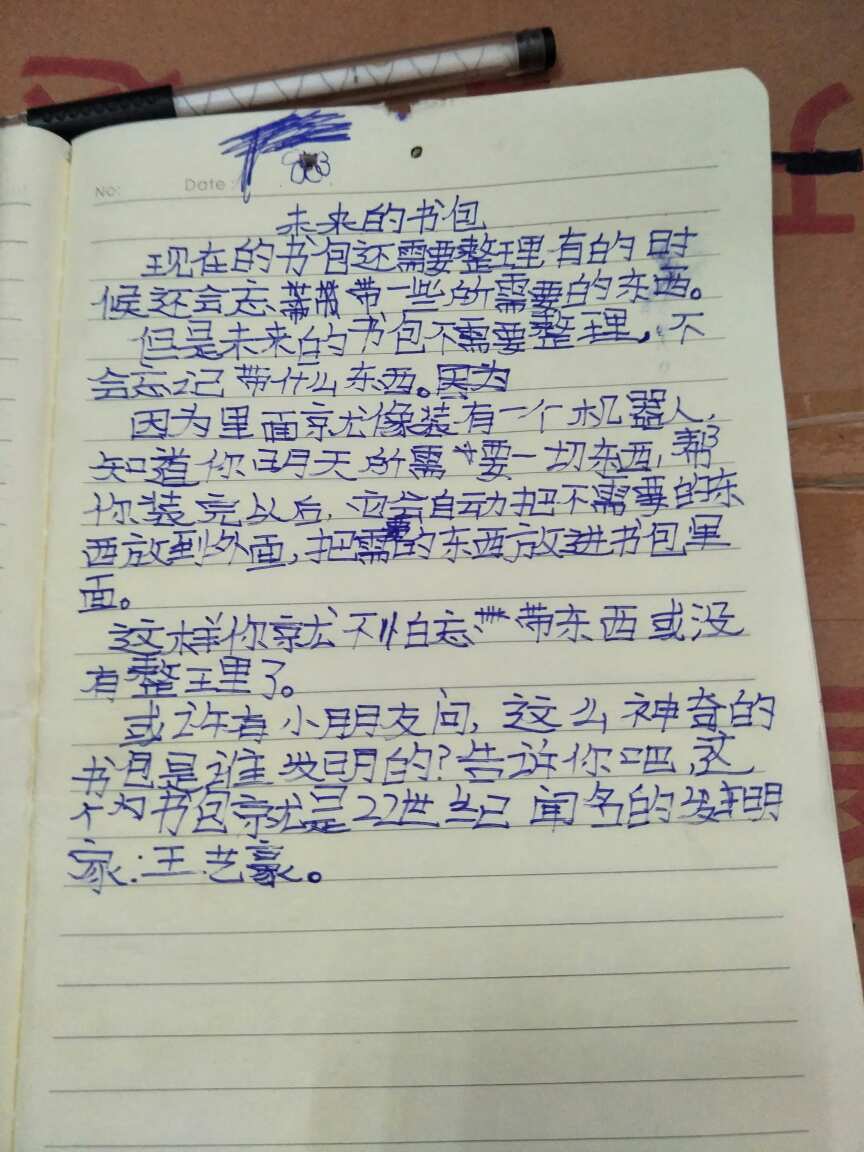 No:
Date:
未来的书包
现在的书包还需要整理有的时
候还会忘带一些所需要的东西。
但是未来的书包不需要整理,不
会忘记带什么东西。因为
因为里面就像装有一个机器人,
知道你明天所需要一切东西,帮
你装完以后,它会自动把不需要的东
西放到外面,把需要的东西放进书包里
面。
这样你就不怕忘带东西或没
有整理了。
或许有小朋友问,这么神奇的
书包是谁发明的?告诉你吧,这
个书包就是22世纪闻名的发明
家:王艺豪。